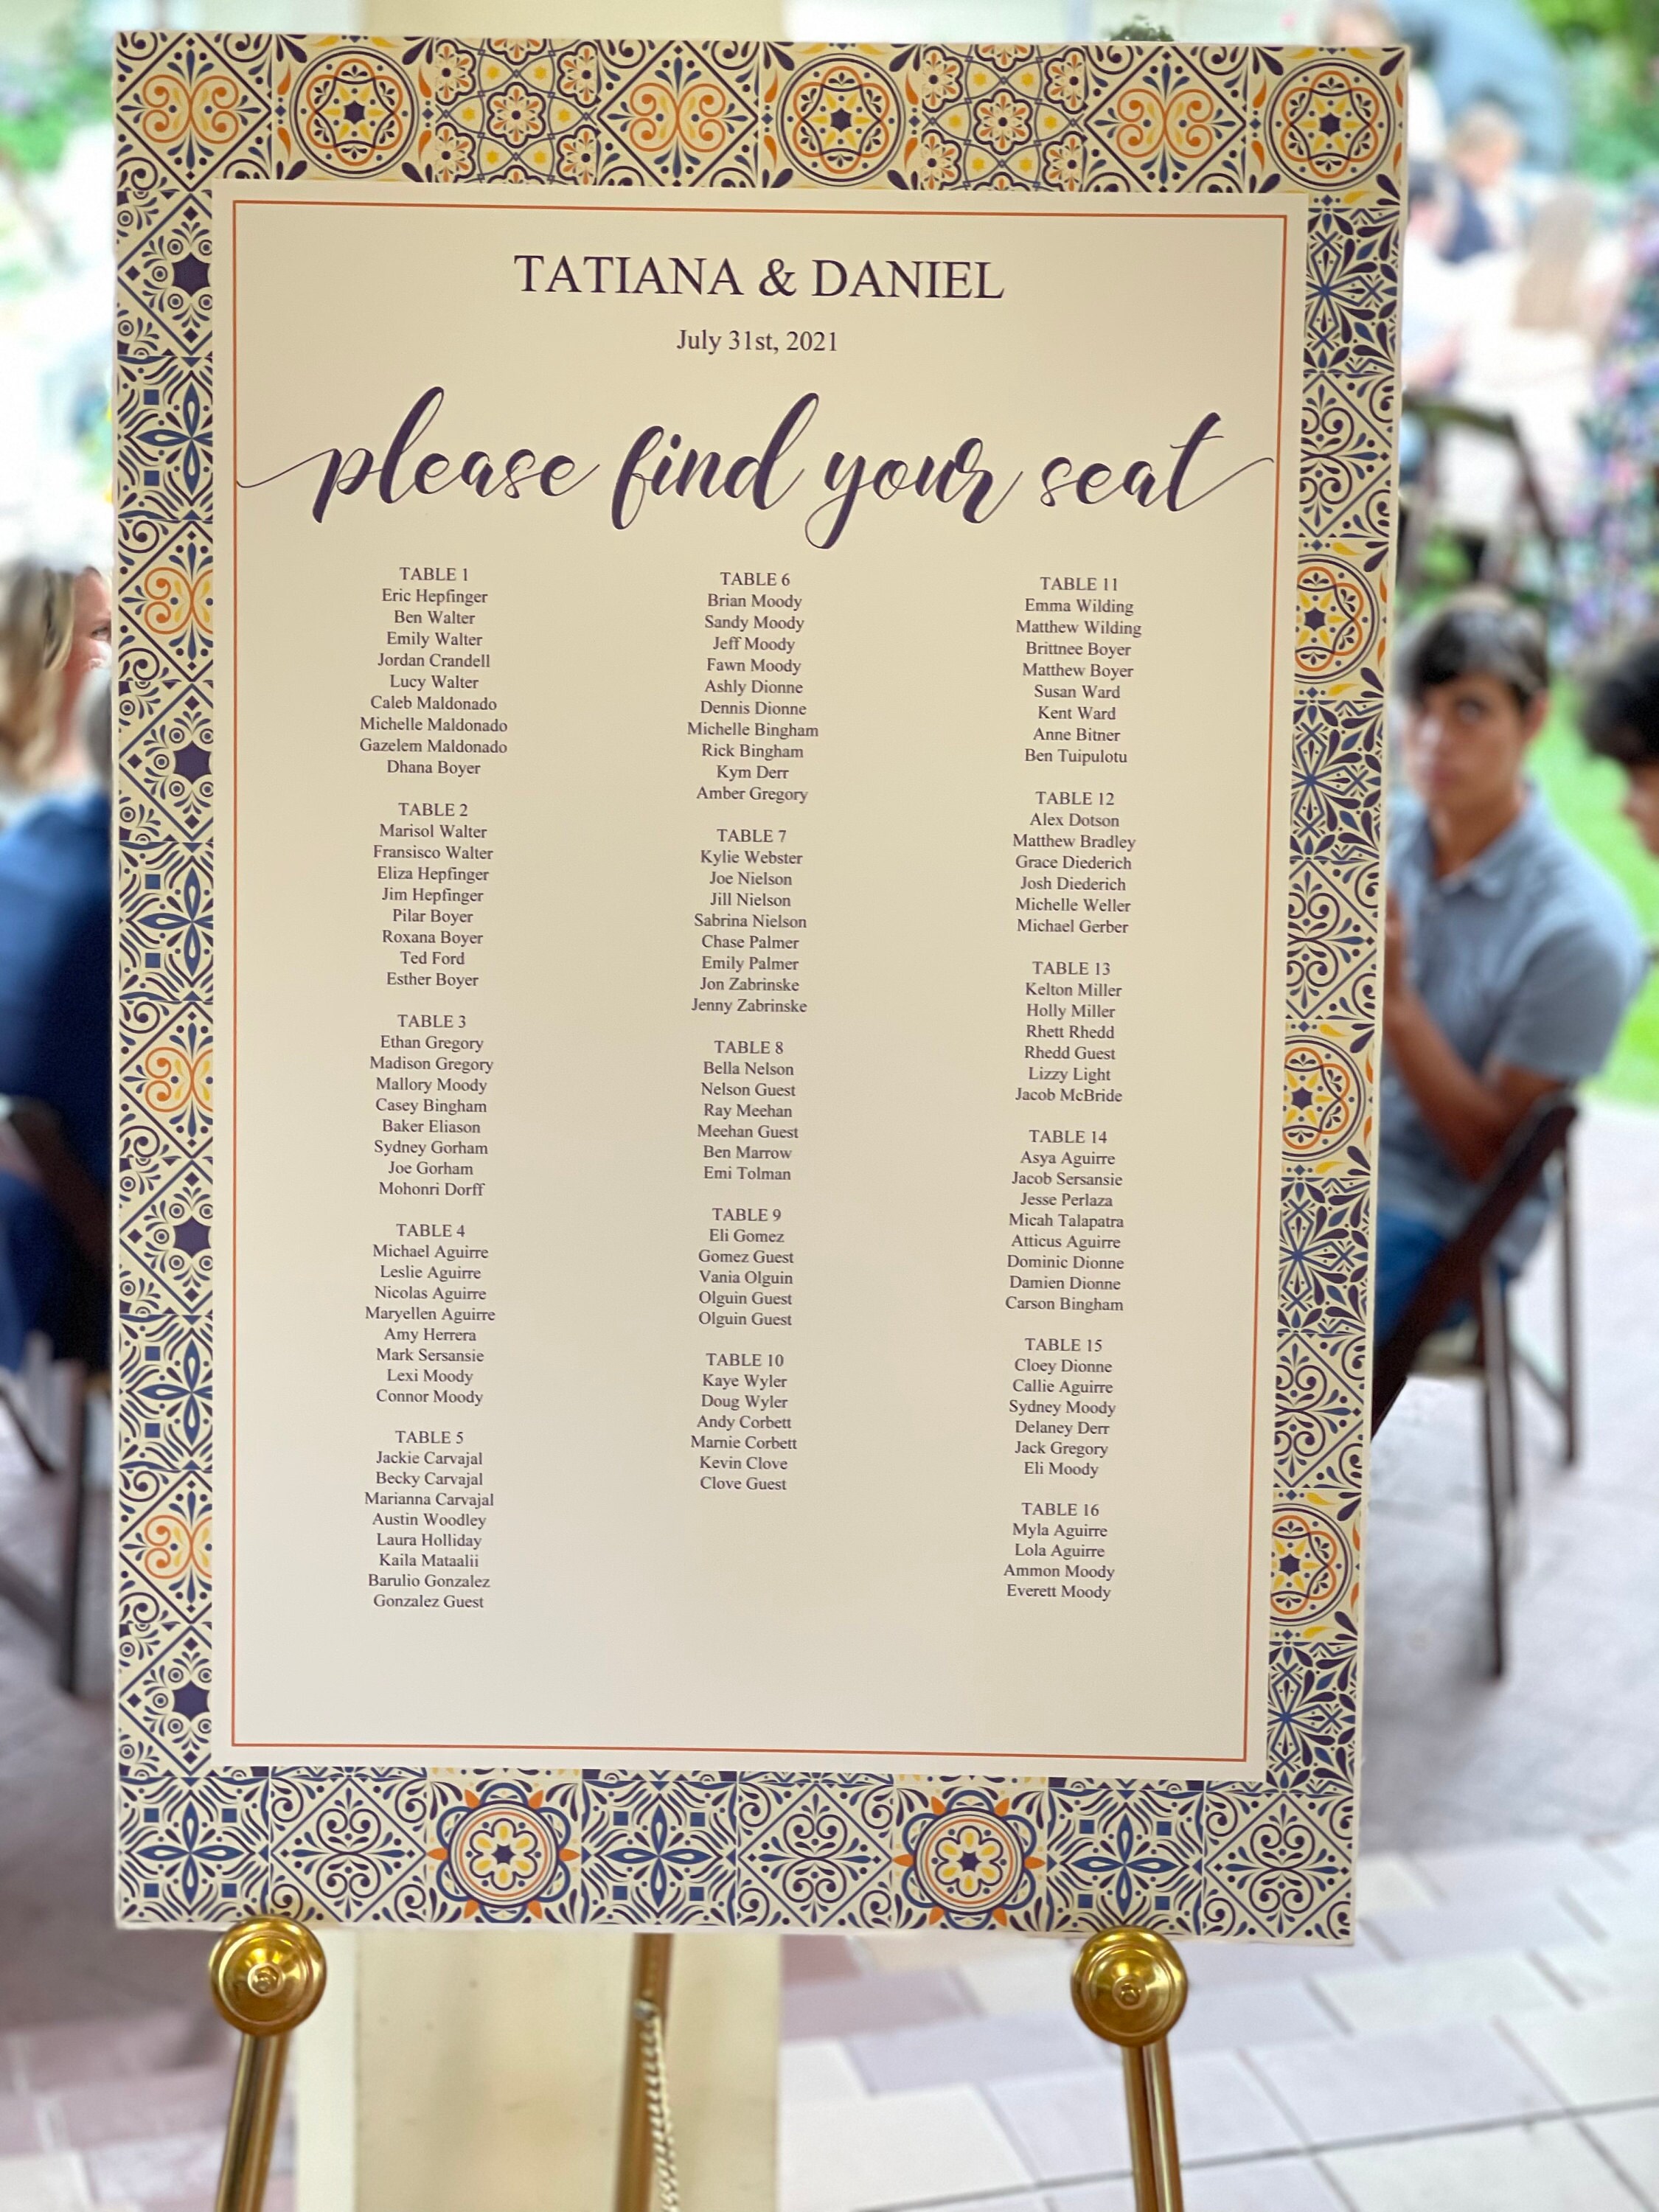 TATIANA & DANIEL
July 31st, 2021
please find your seat
TABLE 1
Eric Hepfinger
Ben Walter
Emily Walter
Jordan Crandell
Lucy Walter
Caleb Maldonado
Michelle Maldonado
Gazelem Maldonado
Dhana Boyer
TABLE 2
Marisol Walter
Fransisco Walter
Eliza Hepfinger
Jim Hepfinger
Pilar Boyer
Roxana Boyer
Ted Ford
Esther Boyer
TABLE 3
Ethan Gregory
Madison Gregory
Mallory Moody
Casey Bingham
Baker Eliason
Sydney Gorham
Joe Gorham
Mohonri Dorff
TABLE 4
Michael Aguirre
Leslie Aguirre
Nicolas Aguirre
Maryellen Aguirre
Amy Herrera
Mark Sersansie
Lexi Moody
Connor Moody
TABLE 5
Jackie Carvajal
Becky Carvajal
Marianna Carvajal
Austin Woodley
Laura Holliday
Kaila Mataalii
Barulio Gonzalez
Gonzalez Guest
TABLE 6
Brian Moody
Sandy Moody
Jeff Moody
Fawn Moody
Ashly Dionne
Dennis Dionne
Michelle Bingham
Rick Bingham
Kym Derr
Amber Gregory
TABLE 7
Kylie Webster
Joe Nielson
Jill Nielson
Sabrina Nielson
Chase Palmer
Emily Palmer
Jon Zabrinske
Jenny Zabrinske
TABLE 8
Bella Nelson
Nelson Guest
Ray Meehan
Meehan Guest
Ben Marrow
Emi Tolman
TABLE 9
Eli Gomez
Gomez Guest
Vania Olguin
Olguin Guest
Olguin Guest
TABLE 10
Kaye Wyler
Doug Wyler
Andy Corbett
Marnie Corbett
Kevin Clove
Clove Guest
TABLE 11
Emma Wilding
Matthew Wilding
Brittnee Boyer
Matthew Boyer
Susan Ward
Kent Ward
Anne Bitner
Ben Tuipulotu
TABLE 12
Alex Dotson
Matthew Bradley
Grace Diederich
Josh Diederich
Michelle Weller
Michael Gerber
TABLE 13
Kelton Miller
Holly Miller
Rhett Rhedd
Rhedd Guest
Lizzy Light
Jacob McBride
TABLE 14
Asya Aguirre
Jacob Sersansie
Jesse Perlaza
Micah Talapatra
Atticus Aguirre
Dominic Dionne
Damien Dionne
Carson Bingham
TABLE 15
Cloey Dionne
Callie Aguirre
Sydney Moody
Delaney Derr
Jack Gregory
Eli Moody
TABLE 16
Myla Aguirre
Lola Aguirre
Ammon Moody
Everett Moody